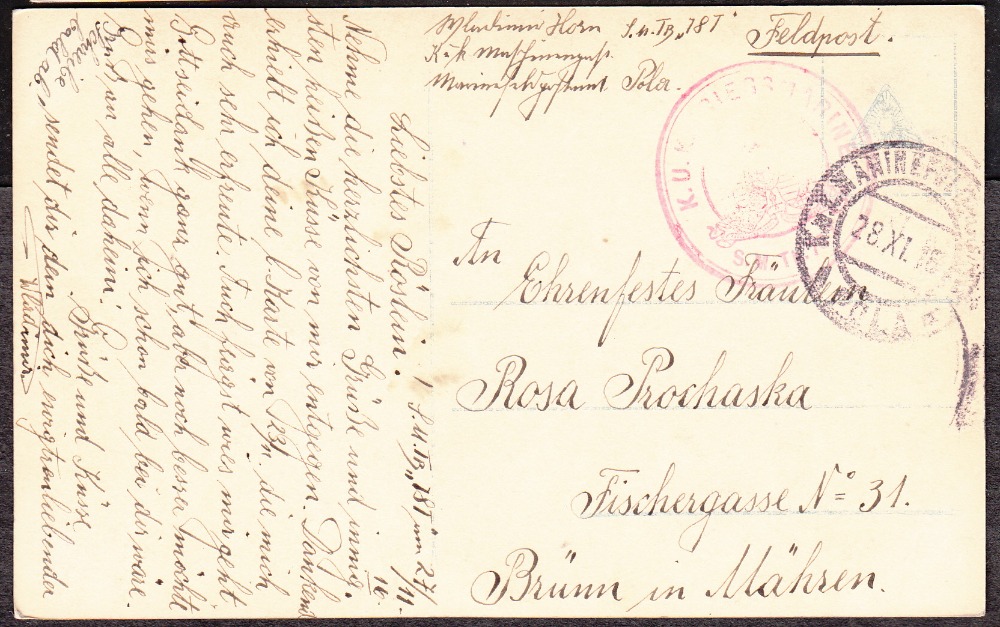 Wladimir Horn S.M.TB „78T"
K.u.k
Marinefeldpostamt Pola.
Feldpost.
K.U.K. KRIEGSMARINE
S.M.TB
K.u.K. MARINEFELDPOSTAMT
28.XI.16
POLA
An
Ehrenfestes Fräulein
Rosa Prochaska
Fischergasse Nº 31.
Brünn in Mähren.
S.M.TB „78T" am 27/11. 16.
Liebstes Röslein!
Nehme die herzlichsten Grüsse und innig-
sten heißen Küsse von mir entgegen. Dankend
erhielt ich deine l. Karte von 23/. die mich
auch sehr erfreute. Auch fragst wies mir geht
Gottseidank ganz gut aber noch besser möchte
mirs gehen, wenn ich schon bald bei dir wäre.
Gruß an alle daheim. Grüße und Küsse
sendet dir den dich ewigtreuliebender
Wladimir
Schreibe
bald ab.